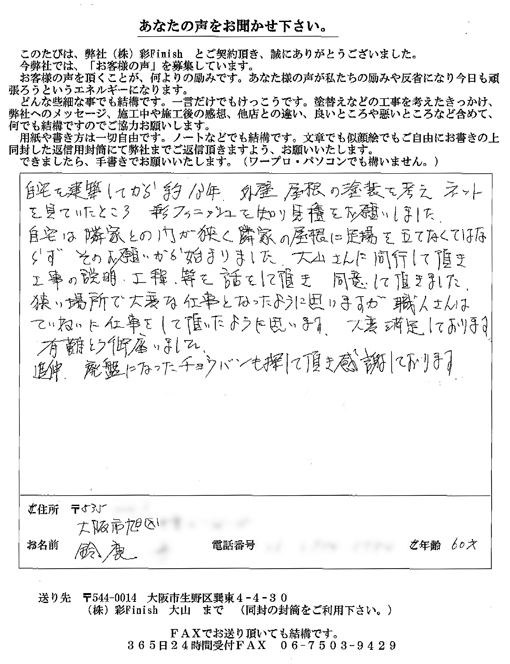 あなたの声をお聞かせ下さい。
このたびは、弊社（株）彩Finish とご契約頂き、誠にありがとうございました。
今弊社では、「お客様の声」を募集しています。
お客様の声を頂くことが、何よりの励みです。あなた様の声が私たちの励みや反省になり今日も頑
張ろうというエネルギーになります。
どんな些細な事でも結構です。一言だけでもけっこうです。塗替えなどの工事を考えたきっかけ、
弊社へのメッセージ、施工中や施工後の感想、他店との違い、良いところや悪いところなど含めて、
何でも結構ですのでご協力お願いします。
用紙や書き方は一切自由です。ノートなどでも結構です。文章でも似顔絵でもご自由にお書きの上
同封した返信用封筒にて弊社までご返信頂きますよう、お願いいたします。
できましたら、手書きでお願いいたします。（ワープロ・パソコンでも構いません。）
自宅を建築してから約10年 外壁 屋根の塗装を考え ネット
を見ていたところ 彩フィニッシュを知り見積をお願いしました
自宅は隣家との内が狭く隣家の屋根に足場を立てなくてはな
らず そのお願いから始まりました 大山さんに同行して頂き
工事の説明、工程、等を話をして頂き 同意して頂きました
狭い場所で大変な仕事となったように思いますが 職人さんは
ていねいに仕事をして頂いたように思います 大変満足しております
有難とう御座いました
追伸 廃盤になったチョウバンも探して頂き感謝しております
ご住所 〒535
大阪市旭区
お名前 鈴鹿 電話番号 ご年齢 60才
送り先 〒544-0014 大阪市生野区巽東4-4-30
（株）彩Finish 大山 まで （同封の封筒をご利用下さい。）
FAXでお送り頂いても結構です。
365日24時間受付FAX 06-7503-9429